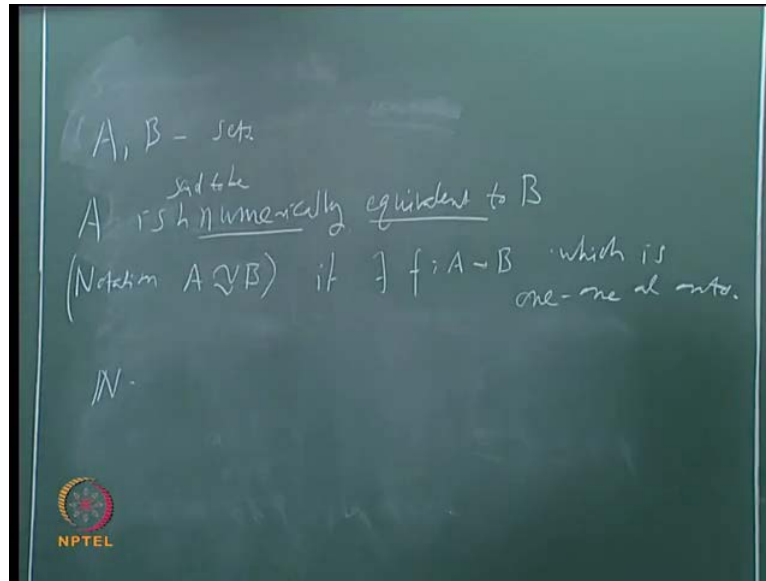 A, B - sets.
said to be
A is numerically equivalent to B
(Notation A ~ B) if ∃ f : A → B which is
one-one and onto.
N.
NPTEL